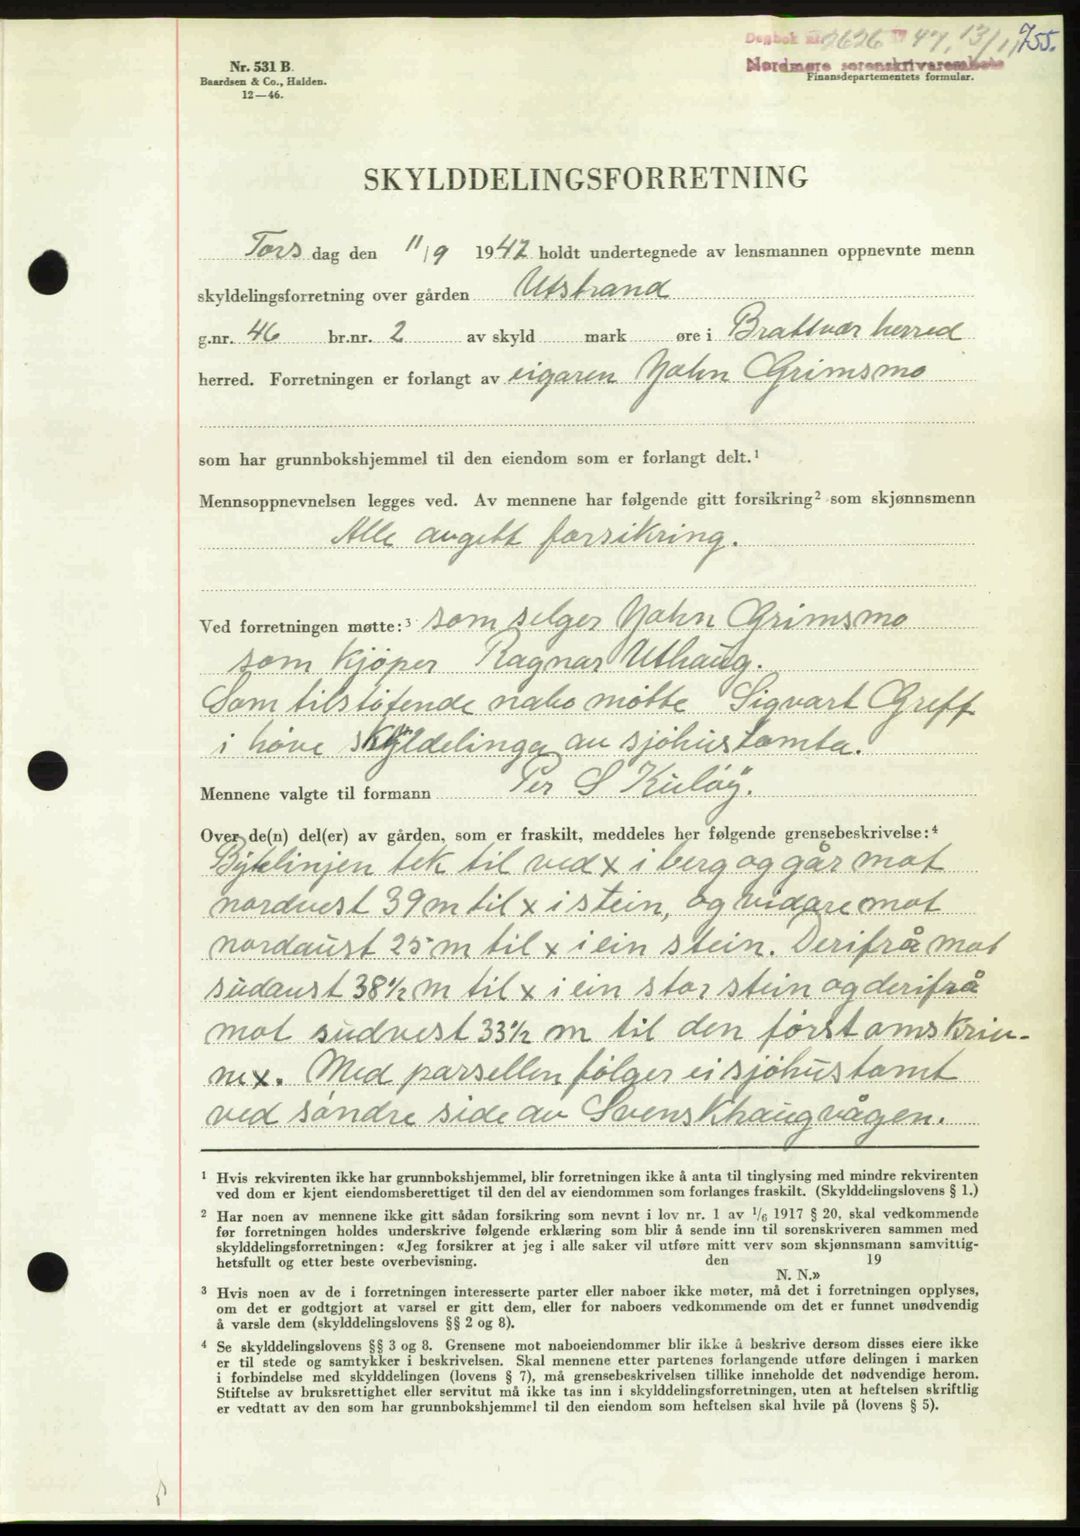 Dagbok nr. 2626 19 47, 13/11
755.
Nordmøre sorenskrivarembete
Nr. 531 B.
Baardsen & Co., Halden.
12—46.
Finansdepartementets formular.
SKYLDDELINGSFORRETNING
Tors dag den 11/9 1947 holdt undertegnede av lensmannen oppnevnte menn
skyldelingsforretning over gården Utstrand
g.nr. 46 br.nr. 2 av skyld mark øre i Brattvær herred
herred. Forretningen er forlangt av eigaren John Grimsmo
som har grunnbokshjemmel til den eiendom som er forlangt delt.¹
Mennsoppnevnelsen legges ved. Av mennene har følgende gitt forsikring² som skjønnsmenn
Alle avgitt forsikring.
Ved forretningen møtte:³ som selger John Grimsmo
som kjöper Ragnar Uthaug.
Som tilstötende nabo mötte Sigvart Greff
i høve skyldelinga av sjöhustomta.
Mennene valgte til formann Per S Kulöy.
Over de(n) del(er) av gården, som er fraskilt, meddeles her følgende grensebeskrivelse:⁴
Bytelinjen tek til ved x i berg og går mot
nordvest 39 m til x i stein, og vidare mot
nordaust 25 m til x i ein stein. Derifrå mot
sudaust 38½ m til x i ein stor stein og derifrå
mot sudvest 33½ m til den först omskriv-
ne x. Med parsellen fölger ei sjöhustomt
ved söndre side av Svenskhaugvågen.
¹ Hvis rekvirenten ikke har grunnbokshjemmel, blir forretningen ikke å anta til tinglysing med mindre rekvirenten
ved dom er kjent eiendomsberettiget til den del av eiendommen som forlanges fraskilt. (Skylddelingslovens § 1.)
² Har noen av mennene ikke gitt sådan forsikring som nevnt i lov nr. 1 av 1/6 1917 § 20, skal vedkommende
før forretningen holdes underskrive følgende erklæring som blir å sende inn til sorenskriveren sammen med
skylddelingsforretningen: «Jeg forsikrer at jeg i alle saker vil utføre mitt verv som skjønnsmann samvittig-
hetsfullt og etter beste overbevisning. den 19
N. N.»
³ Hvis noen av de i forretningen interesserte parter eller naboer ikke møter, må det i forretningen opplyses,
om det er godtgjort at varsel er gitt dem, eller for naboers vedkommende om det er funnet unødvendig
å varsle dem (skylddelingslovens §§ 2 og 8).
⁴ Se skylddelingslovens §§ 3 og 8. Grensene mot naboeiendommer blir ikke å beskrive dersom disses eiere ikke
er til stede og samtykker i beskrivelsen. Skal mennene etter partenes forlangende utføre delingen i marken
i forbindelse med skylddelingen (lovens § 7), må grensebeskrivelsen tillike inneholde det nødvendige herom.
Stiftelse av bruksrettighet eller servitut må ikke tas inn i skylddelingsforretningen, uten at heftelsen skriftlig
er vedtatt av den som har grunnbokshjemmel til den eiendom som heftelsen skal hvile på (lovens § 5).